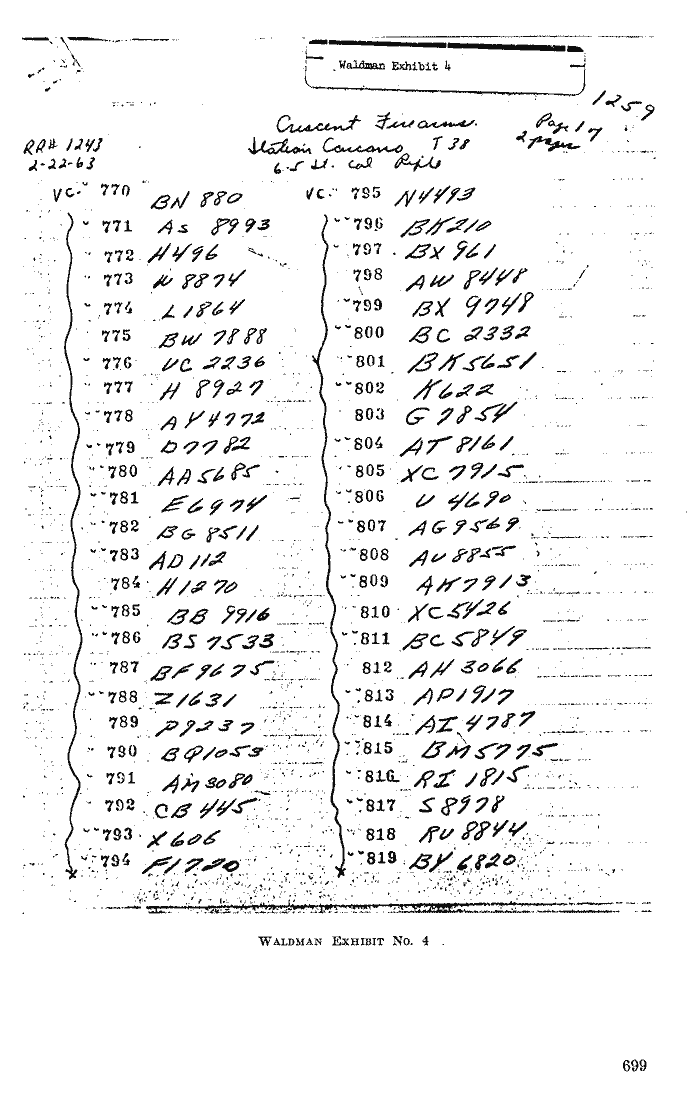 Waldman Exhibit 4
1259
Crescent Firearms.
Page 1 of
2 pages
RR# 1243
Italian Carcano T 38
2-22-63
6.5 It. cal Rifle
VC- 770 BN 880
771 AS 8993
772 H496
773 N 8874
774 L1864
775 BW 7888
776 UC 2236
777 H 8927
778 AY4772
779 D7782
780 AA5685
781 E6974
782 BG 8511
783 AD 112
784 H1270
785 BB 9916
786 BS 7533
787 BF9675
788 Z1631
789 P9237
790 BQ1053
791 AM3080
792 CB 445
793 X606
794 F1720
VC- 795 N4493
796 BK210
797 BX 961
798 AW 8448
799 BX 9748
800 BC 2332
801 BK5651
802 K622
803 G 7854
804 AT 8161
805 XC 7915
806 U 4690
807 AG9569
808 AU 8855
809 AK7913
810 XC5426
811 BC5849
812 AH 3066
813 AP1917
814 AI 4787
815 BM5775
816 RI 1815
817 S8978
818 RU 8844
819 BY 6820
WALDMAN EXHIBIT NO. 4
699